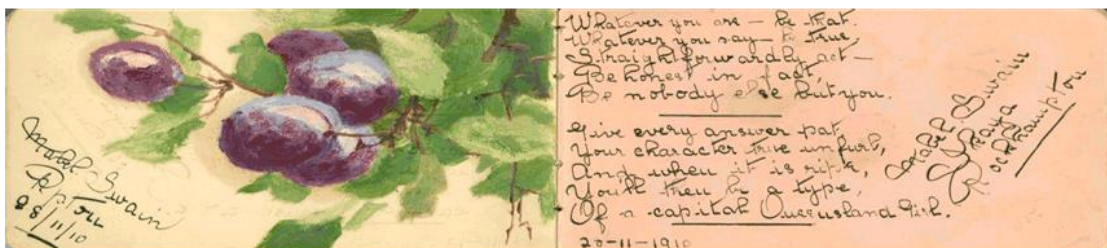 Mabel Swain
R/pton
28/11/10
Whatever you are — be that.
Whatever you say — be true,
Straightforwardly act —
Be honest in fact,
Be nobody else but you.
Give every answer pat
Your character true unfurl,
And when it is ripe,
You'll then be a type,
Of a capital Queensland Girl.
20-11-1910
Mabel Swain
Rockhampton